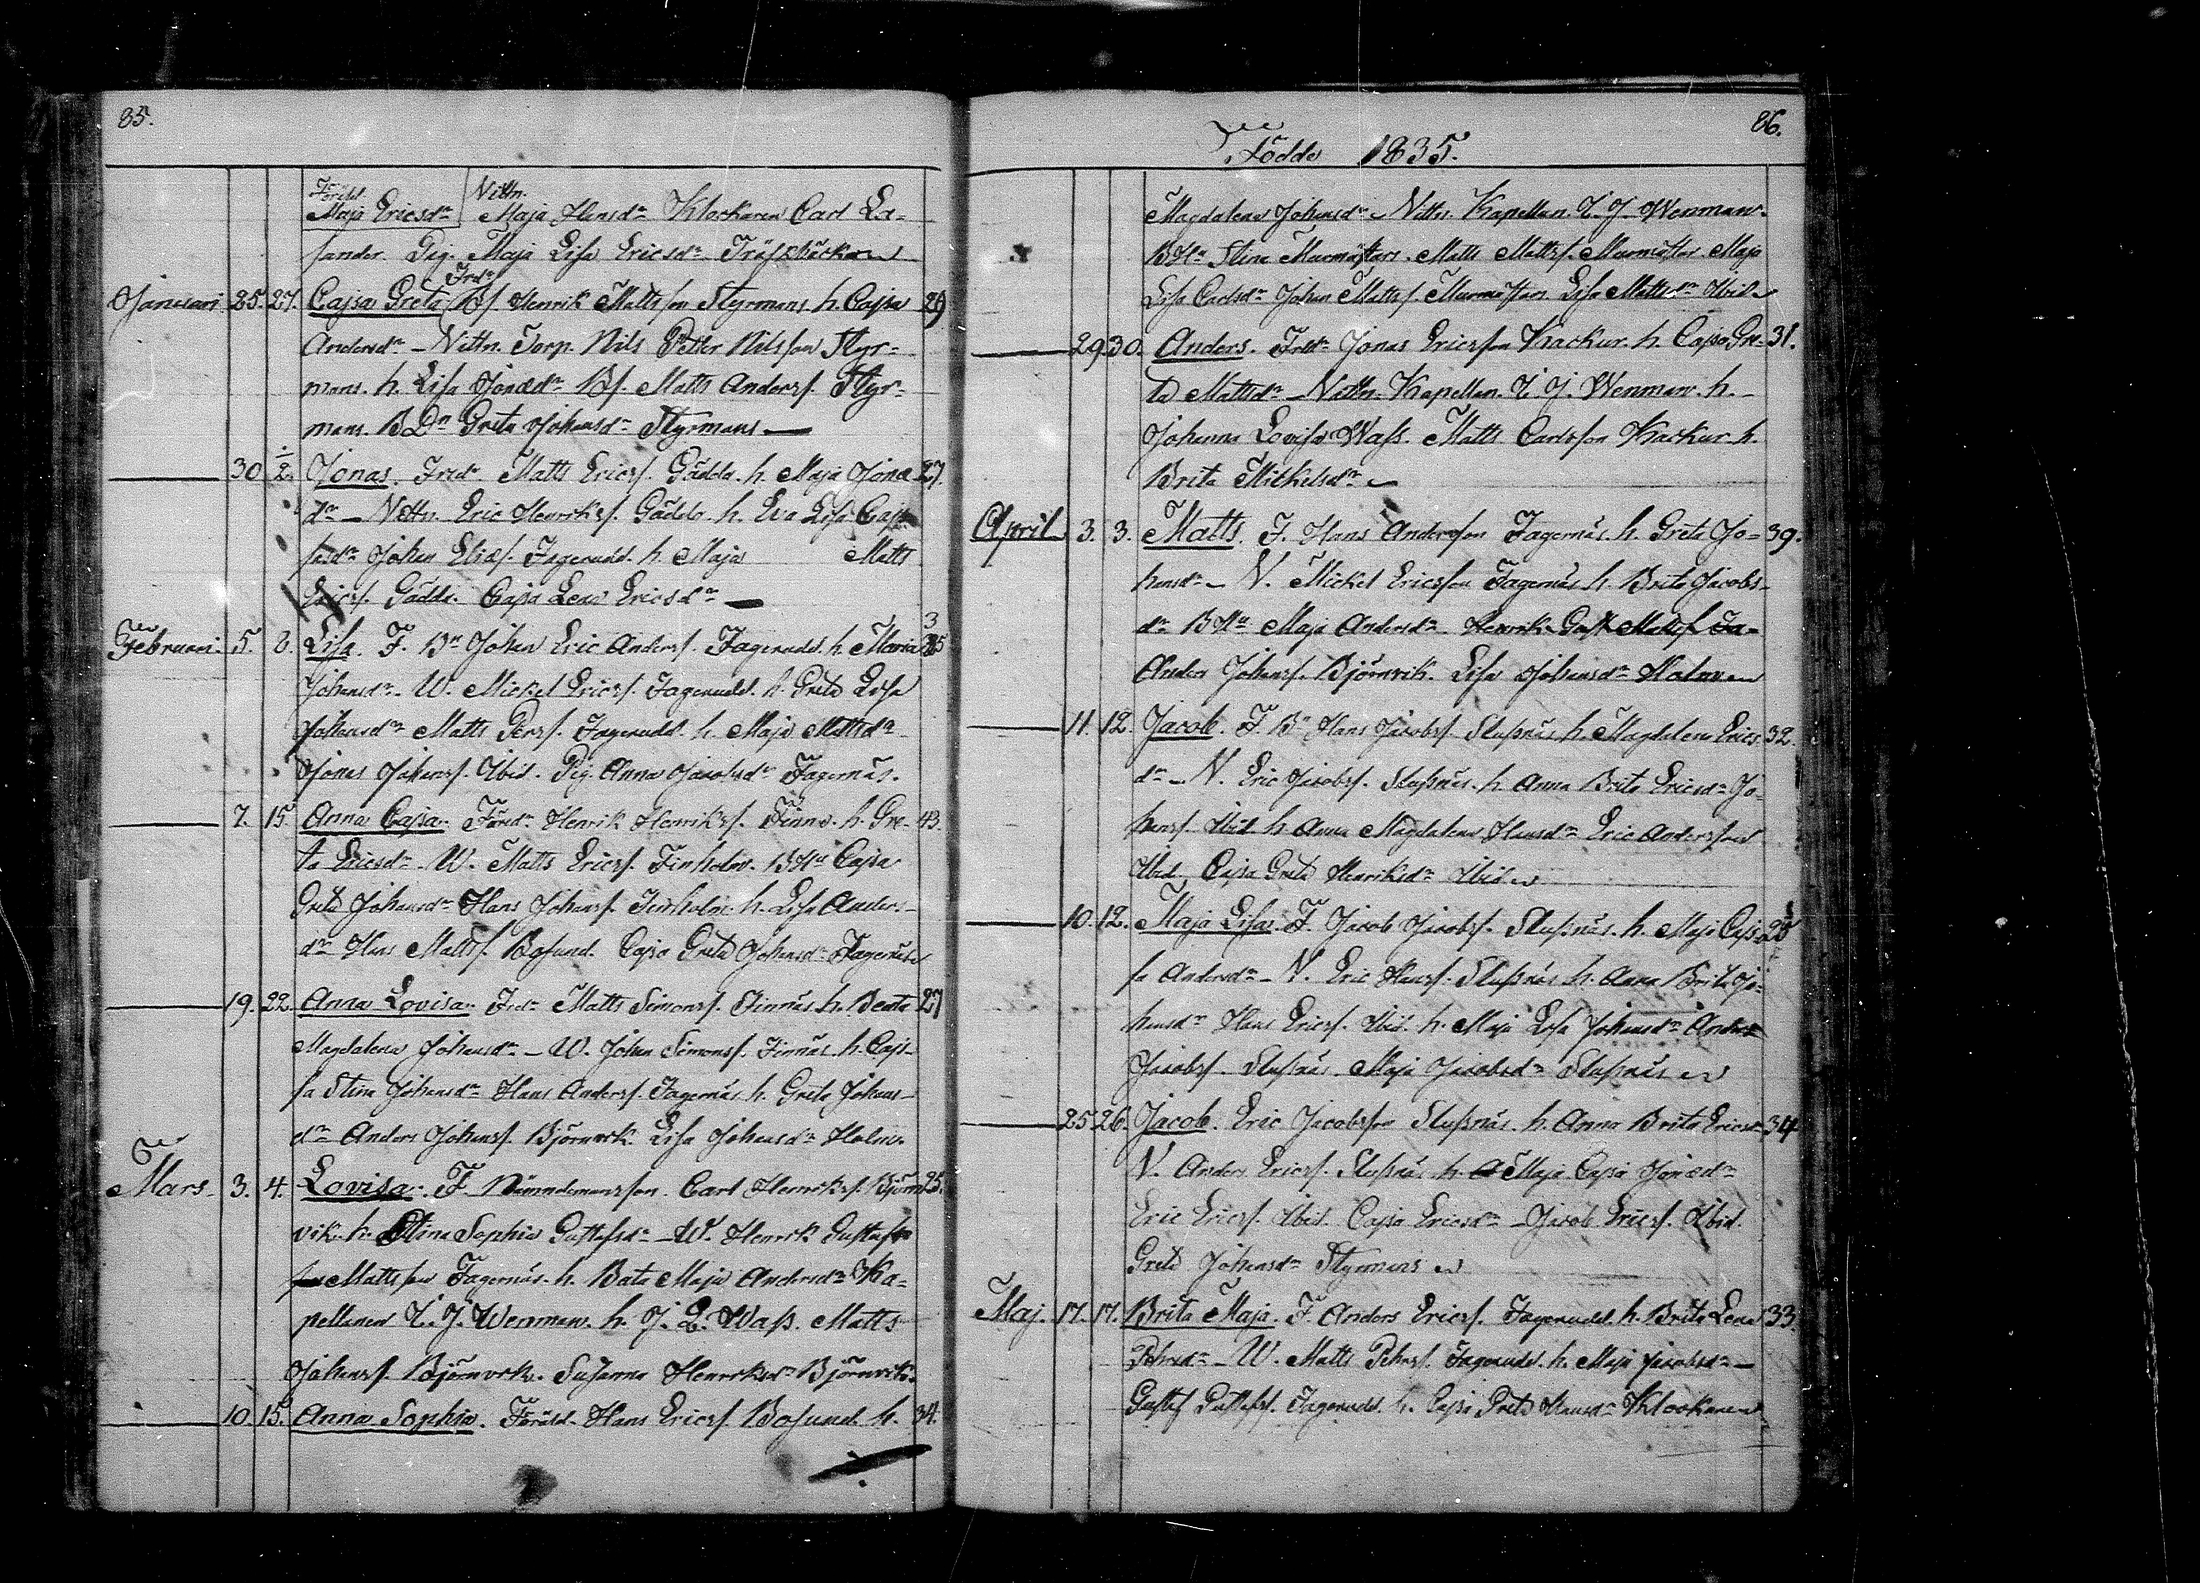 85.
Föräld. Vittn.
Maja Ericsdr Maja Hansdr Klockaren Carl La=
sander Pig. Maja Lisa Ericsdr Träskbäcka
Januari 25. 27. Cajsa Greta Frdr Bs. Henrik Mattsson Styrmans. h. Cajsa 29
Andersdr – Vittn. Torp. Nils Petter Nilsson Styr=
mans. h. Lisa Jonædr Bs. Matts Anders. Styr=
mans. BDn Greta Johansdr Styrmans —
30 1/2. Jonas. Frdr Matts Ericss. Gädda. h. Maja Jonæ 27.
dr – Vittn Eric Henrikss. Gädda. h. Eva Lisa Caj
sasdr Johan Eliæs. Fagerudd. h. Maja Matts
Ericss. Gädda. Cajsa Lena Ericsdr —
Februari. 5. 8. Lisa. F. Bn Johan Eric Anders. Fagerudd. h. Maria 35
Johansdr – W. Mickel Ericss. Fagerudd. h. Greta Lisa
Johansdr Matts Perss. Fagerudd. h. Maja Mattsdr
Jonas Johanss. Ibid. Pig. Anna Jacobsdr Fagernäs.
7. 15. Anna Cajsa. Föräd. Henrik Henrikss. Finno. h. Gre- 43.
ta Ericsdr – W. Matts Ericss. Finholm. BHu Cajsa
Greta Johansdr Hans Johanss. Finholm. h. Lisa Anders-
dr Hans Mattss. Bosund. Cajsa Greta Johansdr Fagernäs
19. 22. Anna Lovisa. Frdr Matts Simonss. Finnäs h. Beata 27
Magdalena Johansdr – W. Johan Simonss. Finnäs. h. Caj-
sa Stina Johansdr Hans Anderss. Fagernäs h. Greta Johans-
dr Anders Johanss. Björnvik. Lisa Johansdr Holm.
Mars. 3. 4. Lovisa. F. Nämndemansson. Carl Henrikss. Björn 25.
vik. h. Stina Sophia Gustafsdr – W. Henrik Gustaf
Mattsson Fagernäs. h. Bata Maja Andersdr Ka=
pellanen J. J. Wenman. h. J. L. Wass. Matts
Johanss. Björnvik. Susanna Henriksdr Björnvik.
10. 15. Anna Sophia. Föräld. Hans Ericss. Bosund. h. 34.
86.
Födde 1835.
Magdalena Johansdr – Vittn. Kapellan. J. J. Wenman.
BHu Stina Murmästars. Matts Mattss. Murmästar. Maja
Lisa Carlsdr Johan Mattss. Murmästars Lisa Mattsdr Ibid.
29. 30. Anders. Frdr Jonas Ericsson Kackur. h. Cajsa Gre- 31.
ta Mattsdr – Vittn. Kapellan. J. J. Wenman. h. –
Johanna Lovisa Wass. Matts Carlsson Kackur. h.
Brita Mickelsdr
April 3. 3. Matts. F. Hans Andersson Fagernäs. h. Greta Jo= 39.
hansdr – V. Mickel Ericsson Fagernäs h. Brita Jacobs-
dr BHu Maja Andersdr Henrik Gust Mattss. Fa-
Anders Johanss. Björnvik. Lisa Johansdr Holm
11. 12. Jacob. F. Bn Hans Jacobss. Slussnäs. h. Magdalena Erics 32.
dr – V. Eric Jacobss. Slussnäs. h. Anna Brita Ericsdr Jo-
hanss. Ibid h. Anna Magdalena Hansdr Eric Andersson
Ibid. Cajsa Greta Henriksdr Ibid
10. 12. Maja Lisa. F. Jacob Jacobss. Slussnäs. h. Maja Cajs- 25
sa Andersdr – V. Eric Hanss. Slussnäs h. Anna Brita Jo-
hansdr Hans Ericss. Ibid. h. Maja Lisa Johansdr Anders
Jacobss. Slussnäs. Maja Jacobsdr Slussnäs
25 26. Jacob. Eric Jacobsson Slussnäs. h. Anna Brita Ericsdr 34
V. Anders Ericss. Slussnäs. h. Maja Cajsa Jonædr
Eric Ericss. Ibid. Cajsa Ericsdr – Jacob Ericss. Ibid.
Greta Johansdr Styrmans
Maj. 17. 17. Brita Maja. F. Anders Ericss. Fagerudd. h. Brita Lena 33.
Pehrsdr – W. Matts Pehrss. Fagerudd. h. Maja Jacobsdr –
Gustaf Gustafss. Fagerudd. h. Cajsa Greta Hansdr Klockare